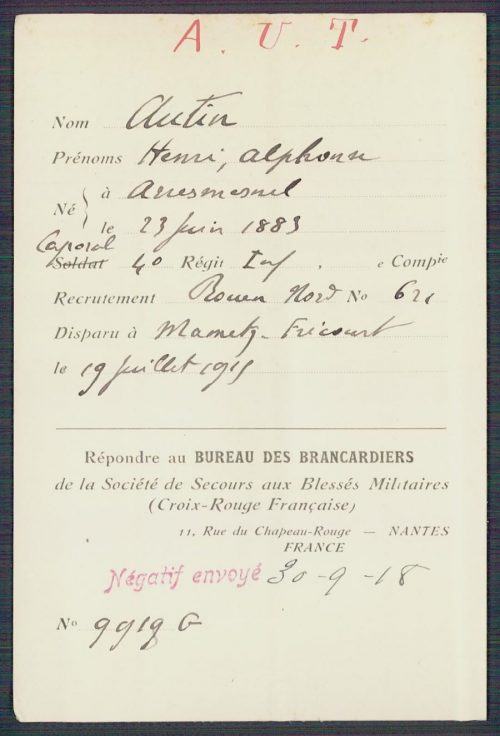 A. U. T.
Nom Autin
Prénoms Henri, alphonse
Né à
le 23 Juin 1883
Caporal
Soldat 40 Régit Inf . e Compie
Recrutement Rouen Nord No 621
Disparu à Mametz - Fricourt
le 19 Juillet 1915
Répondre au BUREAU DES BRANCARDIERS
de la Société de Secours aux Blessés Militaires
(Croix-Rouge Française)
11, Rue du Chapeau-Rouge — NANTES
FRANCE
Négatif envoyé 30-9-18
No 9919 G